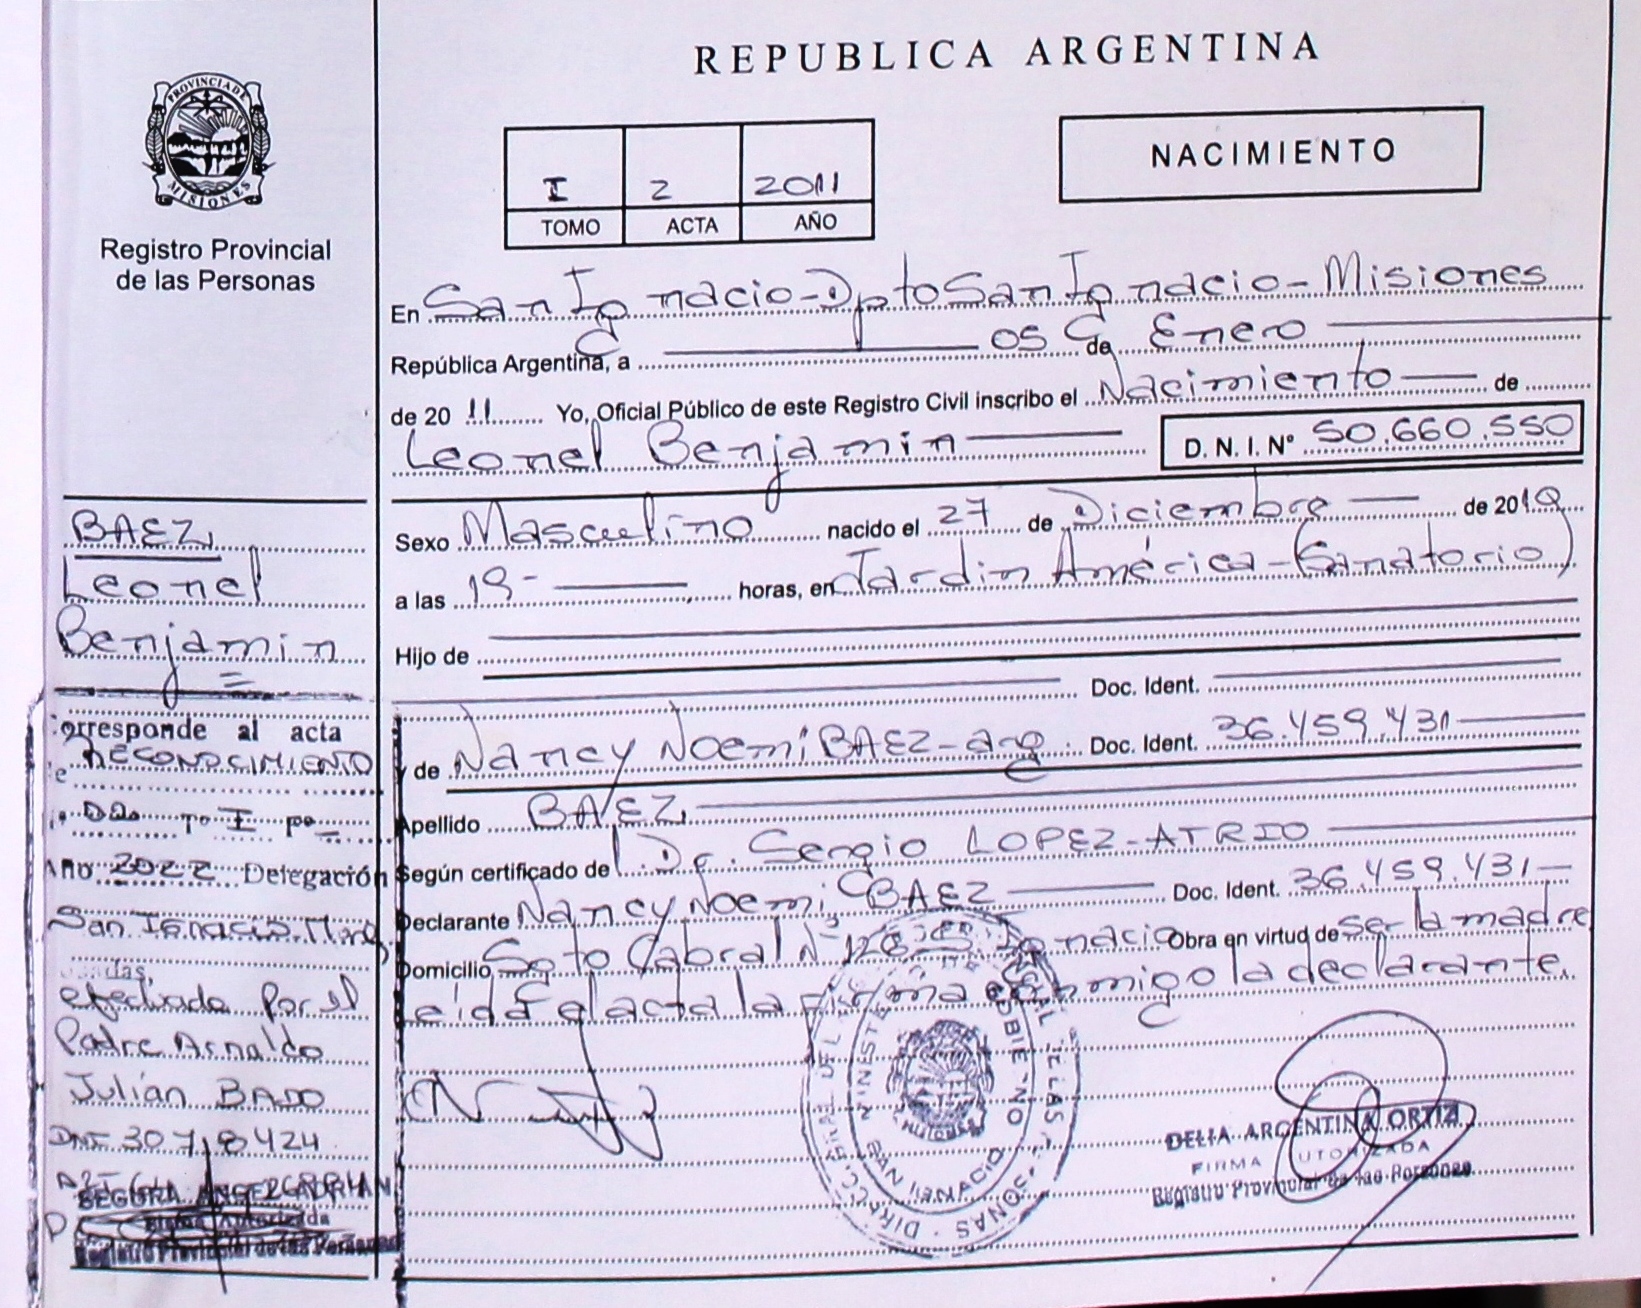 REPUBLICA ARGENTINA
PROVINCIA DE
MISIONES
Registro Provincial
de las Personas
I 2 2011
TOMO ACTA AÑO
NACIMIENTO
En San Ignacio - Dpto San Ignacio - Misiones
República Argentina, a 05 de Enero
de 2011 Yo, Oficial Público de este Registro Civil inscribo el Nacimiento de
Leonel Benjamin D. N. I. N° 50.660.550
Sexo Masculino nacido el 27 de Diciembre de 2010
a las 19- horas, en Jardin América - (Sanatorio)
Hijo de
Doc. Ident.
y de Nancy Noemi BAEZ - arg Doc. Ident. 36.459.431
Apellido BAEZ
Según certificado de Dr. Sergio LOPEZ - ATRIO
Declarante Nancy Noemi BAEZ Doc. Ident. 36.459.431-
Domicilio Soto Cabral N° 128 Ignacio Obra en virtud de ser la madre
leida el acta la firma conmigo la declarante.
BAEZ
Leonel
Benjamin
Corresponde al acta
RECONOCIMIENTO
T° I F°
Año 2022 Delegación
San Ignacio
efectuada Por el
Padre Arnaldo
Julián BADO
DNI 30.718424
SEGURA ANGEL ADRIAN
Firma Autorizada
Registro Provincial de las Personas
SAN IGNACIO
MISIONES
DELIA ARGENTINA ORTIZ
FIRMA AUTORIZADA
Registro Provincial de las Personas